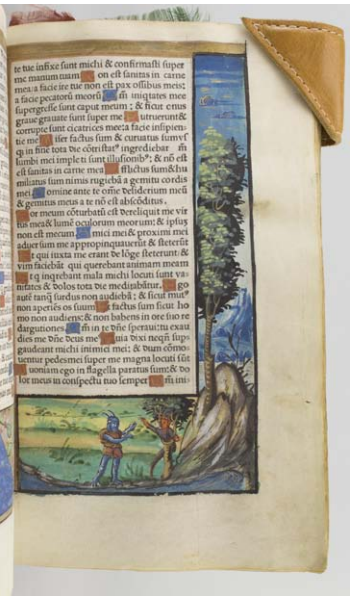 te tue infixe sunt michi & confirmasti super
me manum tuam on est sanitas in carne
mea: a facie ire tue non est pax ossibus meis:
a facie pecatorū meorū m iniqitates mee
supergresse sunt caput meum: & sicut onus
graue grauate sunt super me utruerunt &
corrupte sunt cicatrices mee: a facie insipien
tie mee iser factus sum & curuatus sum vs
q; in fine tota die cōtristatꝰ ingrediebar m
lumbi mei imple ti sunt illusionibꝰ; & nō est
est sanitas in carne mea fflictus sum & hu
miliatus sum nimis rugiebā a gemitu cordis
mei ornine ante te om̄e desiderium meū
& gemitus meus a te nō est absconditus.
or meum cōturbatū est dereliquit me vir
tus mea & lumē oculorum meorum: & ipsuꝫ
non est mecum mici mei & proximi mei
aduersum me appropinquauerūt & steterūt
t qui iuxta me erant de lōge steterunt: &
vim faciebāt qui querebant animam meam
t q inqrebant mala michi locuti sunt va-
nitates & dolos tota die meditabātur. go
autē tanq̄ surdus non audiebā: & sicut mutꝰ
non aperiēs os suum t factus sum sicut ho
mo non audiens: & non habens in ore suo re
dargutiones m in te dn̄e speraui: tu exau
dies me dn̄e deus meꝰ uia dixi neqn̄ sup
gaudeant michi inimici mei: & dum cōmo-
uentur pedes mei super me magna locuti sūt
uoniam ego in flagella paratus sum: & do
lor meus in conspectu tuo semper m ini